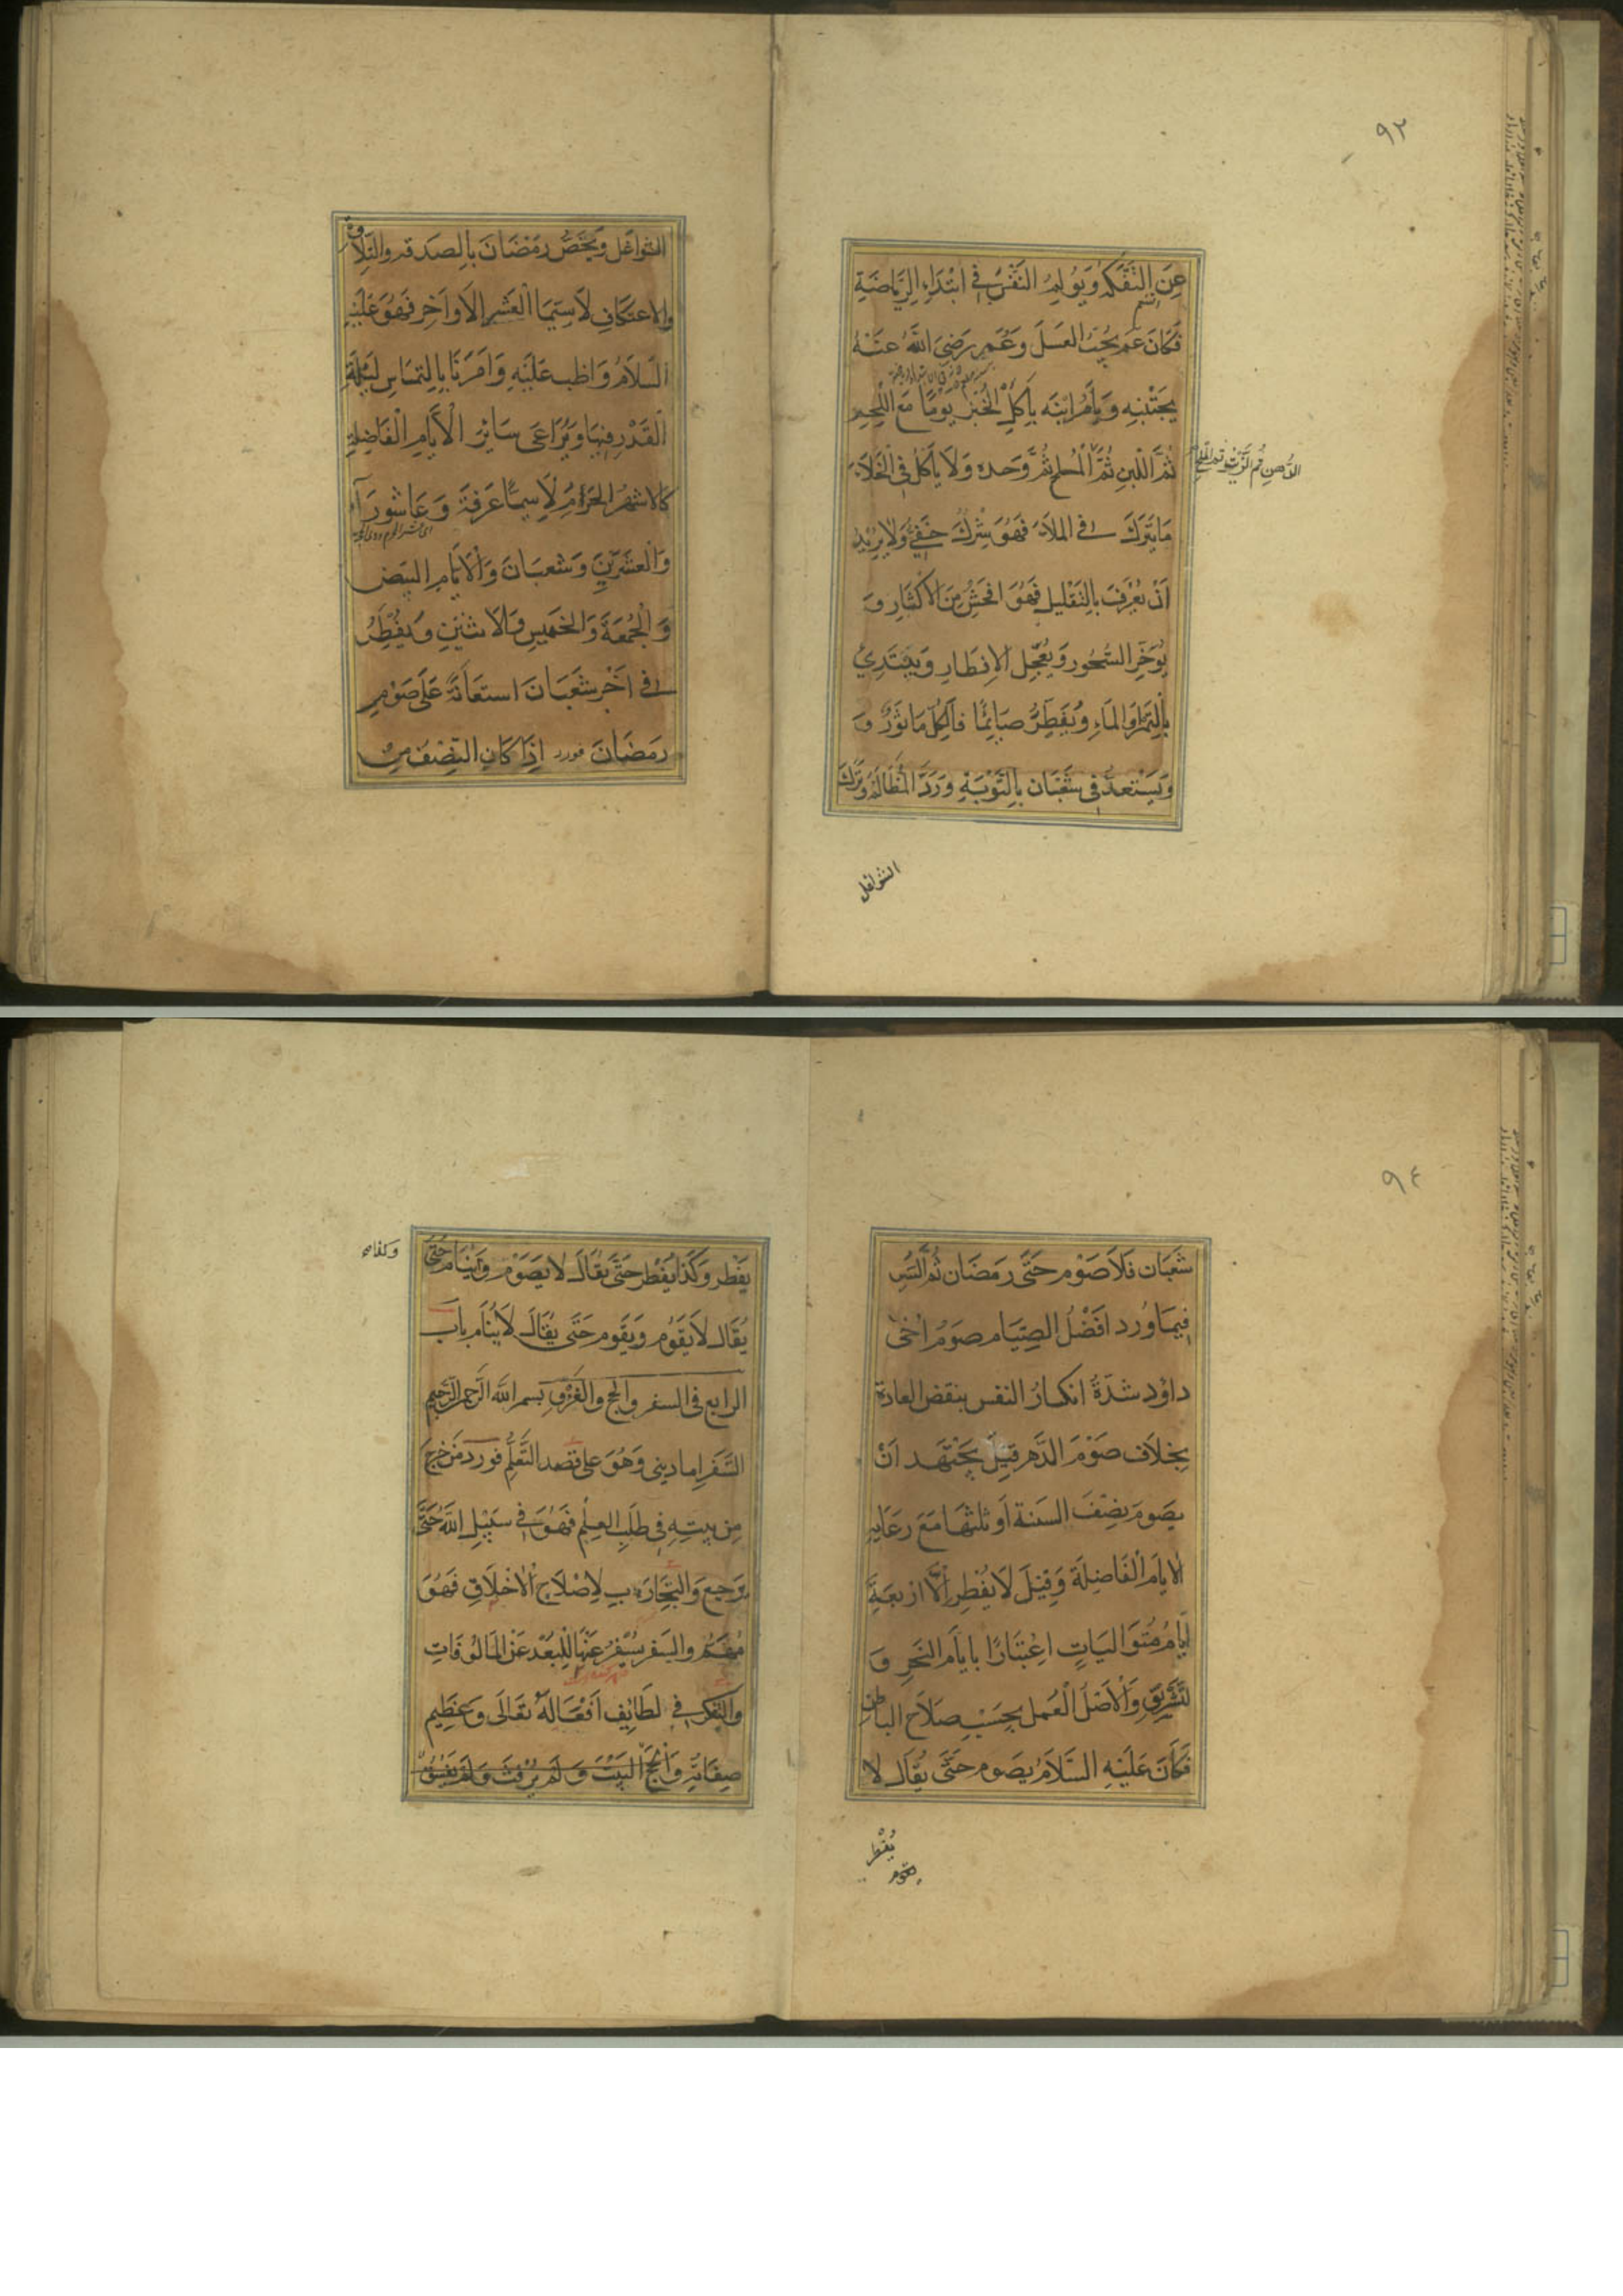 ٩٣
عن التفكه ويولم النفس في ابتداء الرياضة
فكان عم يحب العسل وعمر رضي الله عنه
يجتنبه ويأمر ابنه يأكل الخبز يوما مع اللحم
ثم اللبن ثم الملح ثم وحده ولا يأكل في الخلاء
الدهن ثم الزيت ثم الملح
ما يترك في الملاء فهو شرك خفي ولا يريد
ان يعرف بالتقليل فهو افحش من الاكثار و
يؤخر السحور ويعجل الافطار ويبتدئ
بالتمر والماء ويفطر صايما فالكل ماثور و
ويستعد في شعبان بالتوبة ورد المظالم وترك
الشواغل
الشواغل ويخص رمضان بالصدقة والتلاوة
والاعتكاف لا سيما العشر الاواخر فهو عليه
السلام واظب عليه وامرنا بالتماس ليلة
القدر فيها ويراعى سائر الايام الفاضلة
كالاشهر الحرم لا سيما عرفة وعاشورآء
والعشرين وشعبان والايام البيض
والجمعة والخميس والاثنين ويفطر
في اخر شعبان استعانة على صوم
رمضان فورد اذا كان النصف من
٩٤
شعبان فلا صوم حتى رمضان ثم السر
فيما ورد افضل الصيام صوم اخى
داود شدة انكسار النفس بنقض العادة
بخلاف صوم الدهر قيل يجتهد ان
يصوم نصف السنة او ثلثها مع رعاية
الايام الفاضلة وقيل لا يفطر الا اربعة
ايام متواليات اعتبارا بايام النحر و
لتشريق والاصل العمل بحسب صلاح الباطن
فكان عليه السلام يصوم حتى يقال لا
يفطر
يفطر وكذا يفطر حتى يقال لا يصوم وينام حتى
يقال لا يقوم ويقوم حتى يقال لا ينام باب
الرابع في السفر والحج والغزو بسم الله الرحمن الرحيم
السفر اما ديني وهو على قصد التعلم فورد من خرج
من بيته في طلب العلم فهو في سبيل الله حتى
يرجع والتجارب لاصلاح الاخلاق فهو
مهم والسفر يسفر عنها للبعد عن المالوفات
والتفكر في لطائف افعاله تعالى وعظيم
صفاته والحج البيت ولم يرفث ولم يفسق